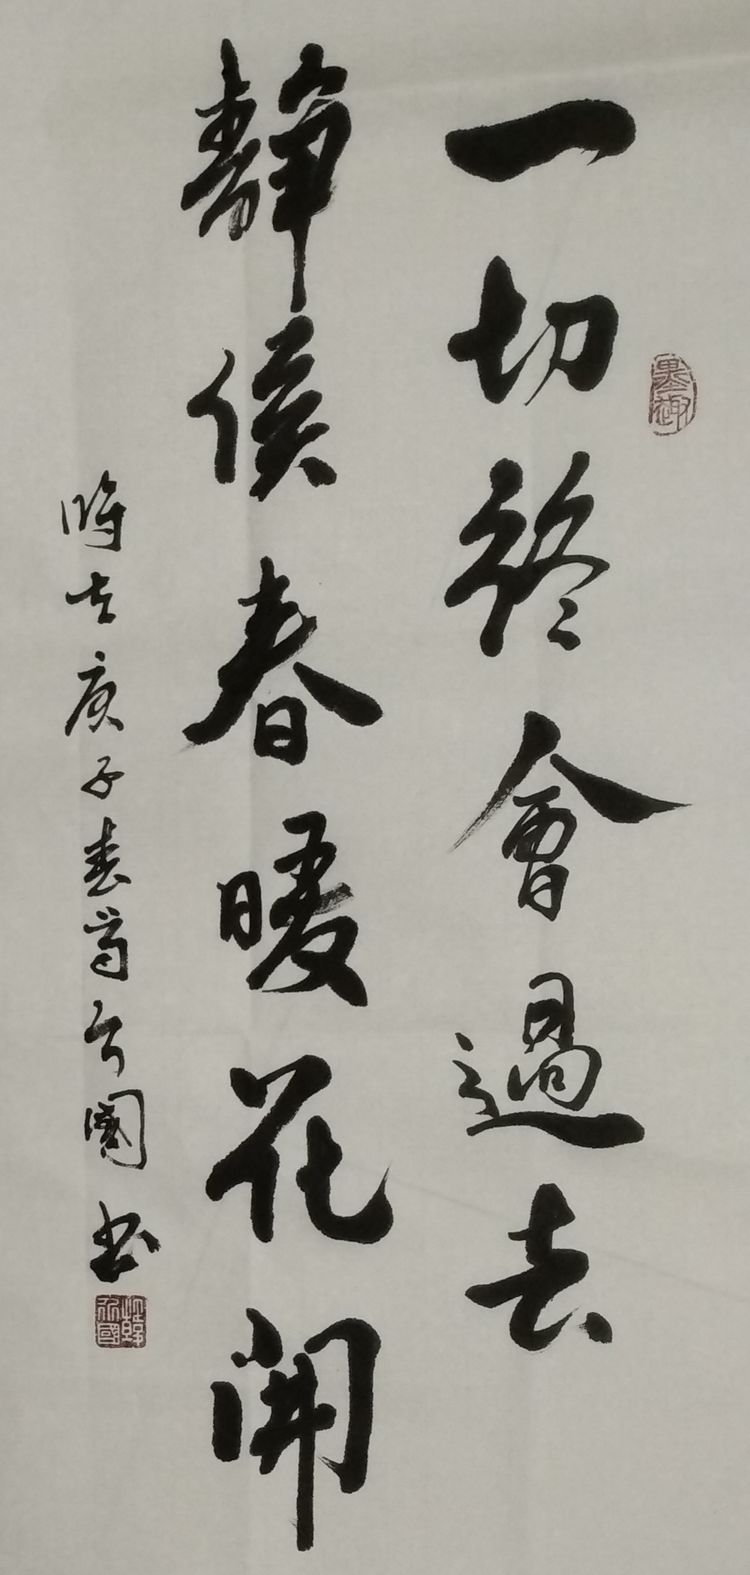 一切終會過去
靜候春暖花開
時在庚子春
國书
墨趣